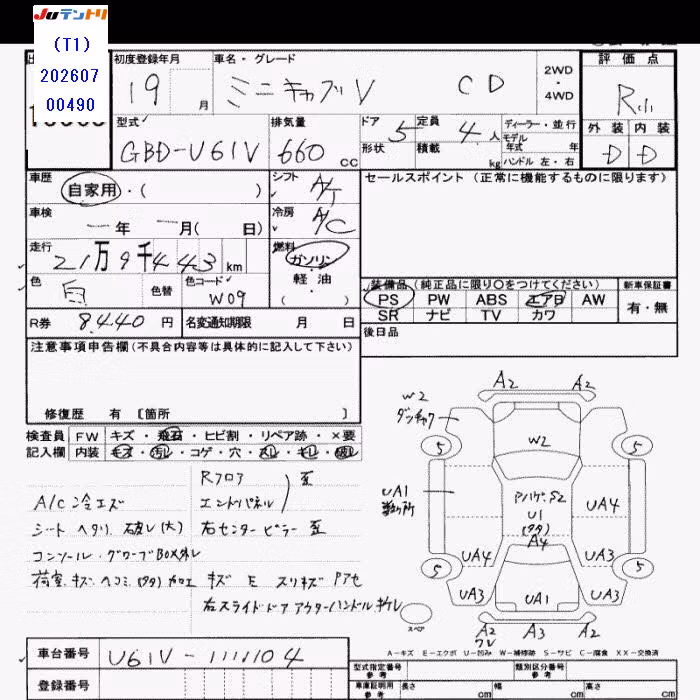 Juテントリ
(T1)
202607
00490
初度登録年月
19 月
車名・グレード
ミニキャブV CD
2WD
・
4WD
評価点
R小
外装 内装
D D
型式
GBD-U61V
排気量
660 cc
ドア 5
形状
定員 4 人
積載 kg
ディーラー・並行
モデル
年式 年
ハンドル 左・右
車歴
自家用・( )
シフト A/T
車検
年 月( 日)
冷房 A/C
走行
21万9千443 km
燃料
ガソリン
軽油
色 白 色替
色コード W09
R券 8,440 円
名変通知期限 月 日
セールスポイント (正常に機能するものに限ります)
装備品(純正品に限り○をつけてください)
PS PW ABS エアB AW
SR ナビ TV カワ
新車保証書
有・無
後日品
注意事項申告欄(不具合内容等は具体的に記入して下さい)
修復歴 有 〔箇所 〕
検査員 FW キズ・飛石・ヒビ割・リペア跡・×要
記入欄 内装 キズ・汚レ・コゲ・穴・スレ・キレ・破レ
Rフロア 歪
A/C冷エズ
エンドパネル
シート ヘタリ 破レ(大)
右センターピラー 歪
コンソール・グローブBOX外レ
荷室 キズ ヘコミ(タタ)加工 キズ E スリキズ Pアセ
右スライドドアアウターハンドルキケレ
W2
A2 A2
5 5
W2
UA1
U1
(タタ)
A4
UA4
UA4 UA3
5 5
UA3 UA1 UA3
スペア
A2 A3 A2
ワレ
A-キズ E-エクボ U-凹み W-補修跡 S-サビ C-腐食 XX-交換済
車台番号 U61V-1111104
登録番号
型式指定番号
参考
類別区分番号
参考
車庫証明用
参考
長さ cm 幅 cm 高さ cm